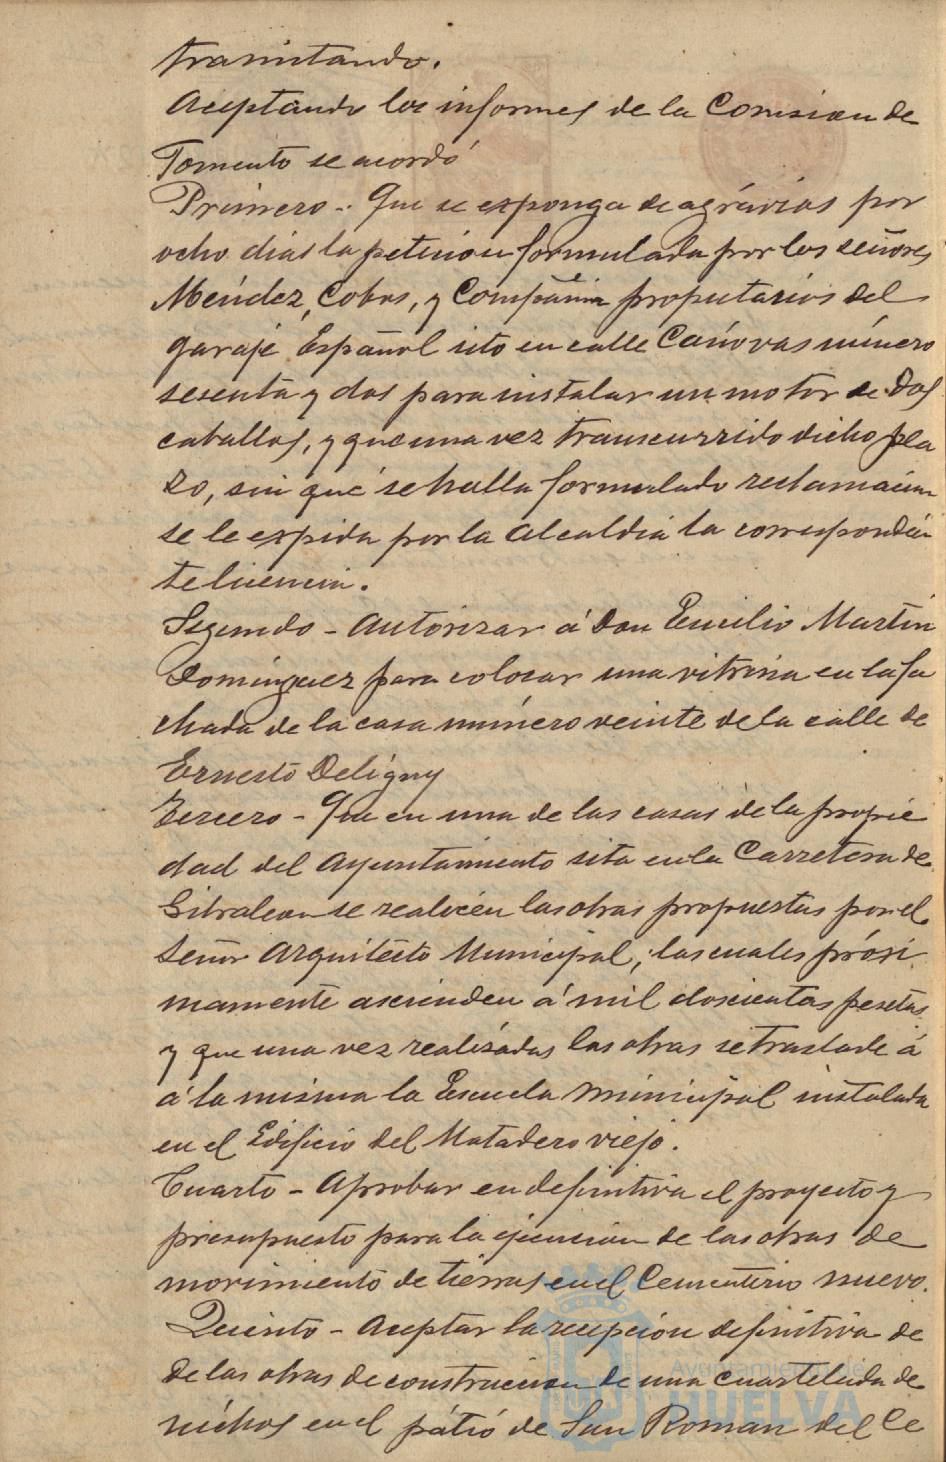 tramitando.
Aceptando los informes de la Comision de
Fomento se acordó
Primero - Que se exponga de agrávios por
ocho dias la peticion formulada por los señores
Méndez, Cobos, y Compañia propietarios del
garaje Español sito en calle Cánovas número
sesenta y dos para instalar un motor de Dos
caballos, y que una vez transcurrido dicho pla
zo, sin que se halla formulado reclamacion
se le expida por la Alcaldia la correspondien
te licencia.
Segundo - Autorizar á Don Emilio Martin
Dominguez para colocar una vitrina en la fa
chada de la casa número veinte de la calle de
Ernesto Deligny
Tercero - Que en una de las casas de la propie
dad del Ayuntamiento sita en la Carretera de
Gibraleon se realicen las obras propuestas por el
Señor Arquitecto Municipal, las cuales prósi
mamente ascienden á mil doscientas pesetas
y que una vez realizadas las obras se traslade á
á la misma la Escuela Municipal instalada
en el Edificio del Matadero viejo.
Cuarto - Aprobar en definitiva el proyecto y
presupuesto para la ejecucion de las obras de
movimiento de tierras en el Cementerio nuevo.
Quinto - Aceptar la recepcion definitiva de
de las obras de construccion de una cuartelada de
nichos en el pátio de San Roman del Ce
Ayuntamiento de
HUELVA